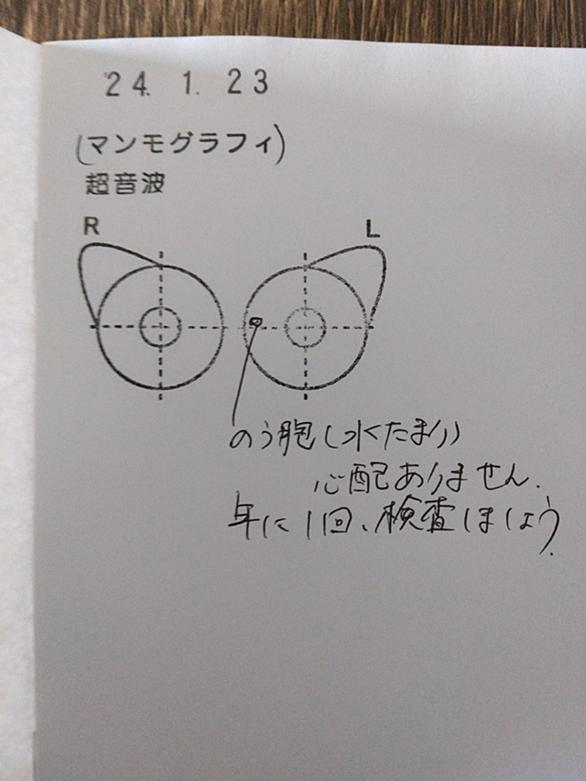 '24. 1. 23
(マンモグラフィ)
超音波
R
L
のう胞(水たまり)
心配ありません.
年に1回、検査しましょう.